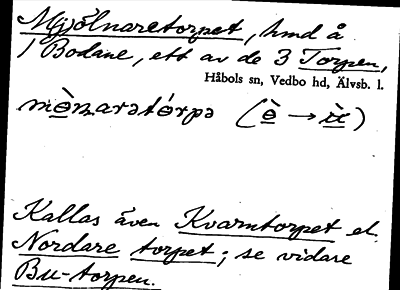 Mjölnaretorpet, hmd å
1 Bodane, ett av de 3 Torpen,
Håbols sn, Vedbo hd, Älvsb. l.
mö̀naratórpə (ö̀ → ǜ)
Kallas även Kvarntorpet el.
Nordare torpet; se vidare
Bu-torpen.